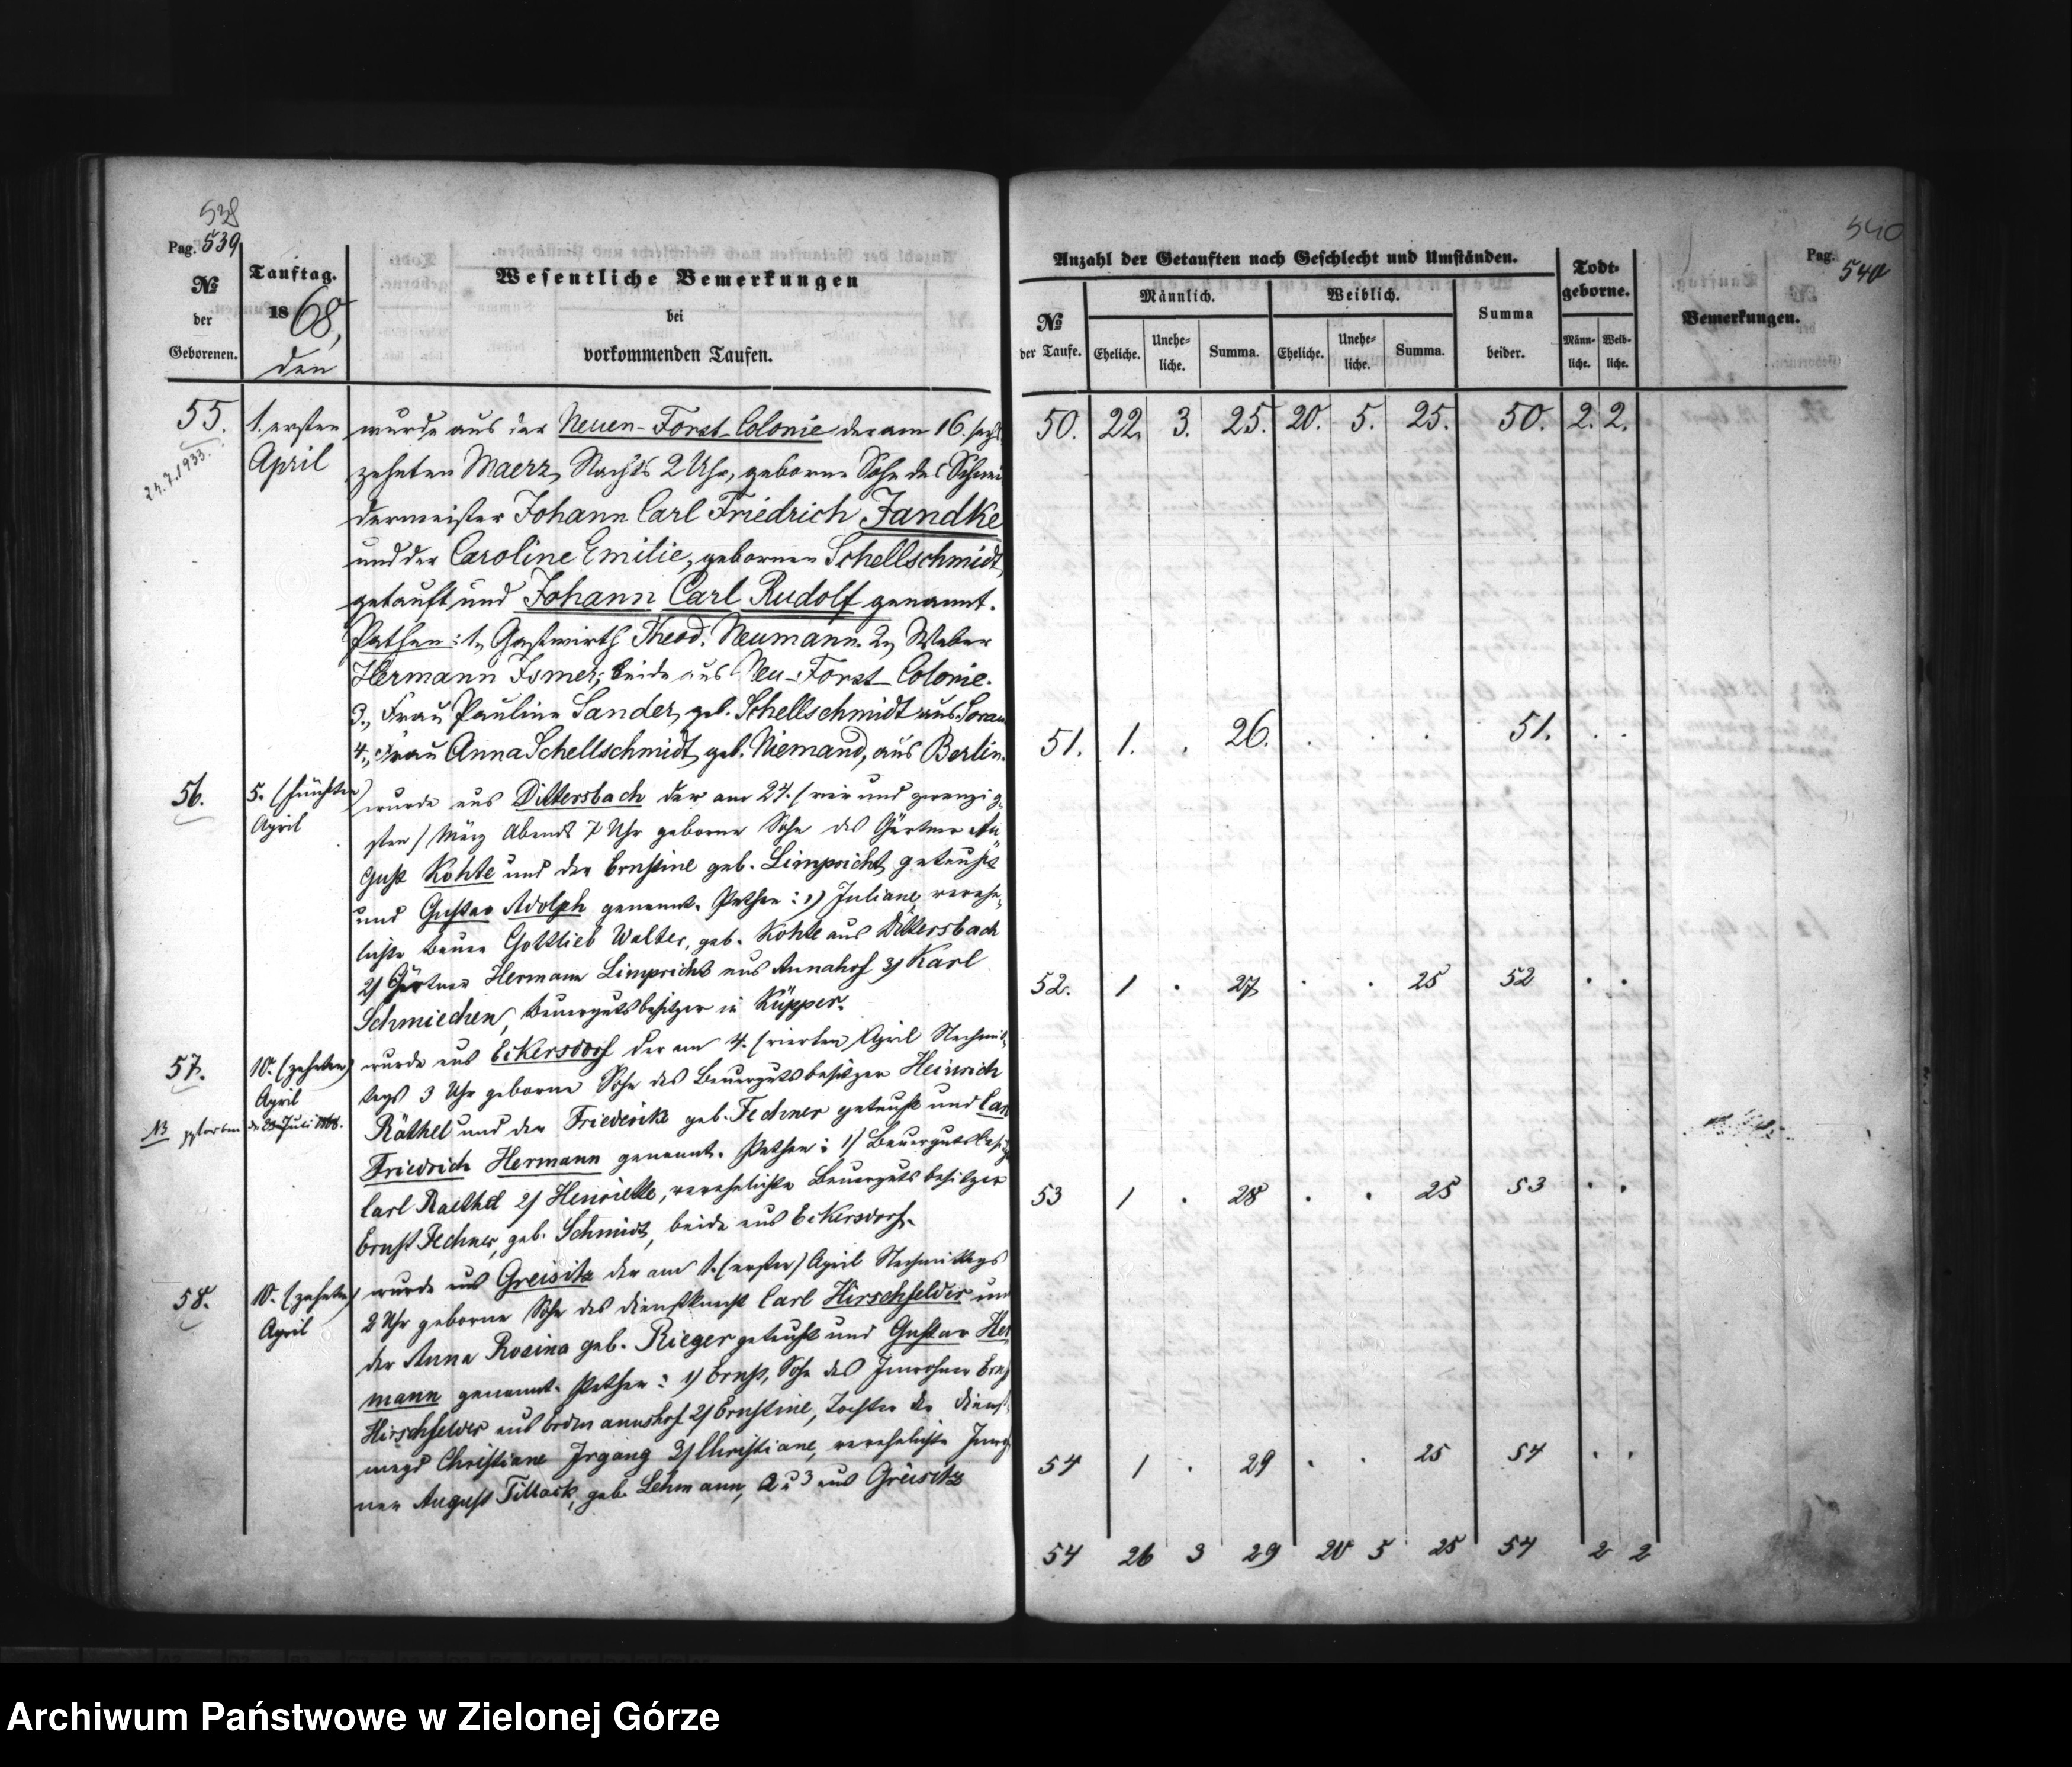 538
Pag. 539
№
der
Geborenen.
Tauftag.
1868,
den
Wesentliche Bemerkungen
bei
vorkommenden Taufen.
55.
24.7.1933.
1. ersten
April
wurde aus der Neuen-Forst-Colonie der am 16. sech
zehnten Maerz, Nachts 2 Uhr, geborne Sohn des Schnei
dermeister Johann Carl Friedrich Jandke
und der Caroline Emilie, gebornen Schellschmidt,
getauft und Johann Carl Rudolf genannt.
Pathen: 1, Gastwirth Theod. Neumann. 2, Weber
Hermann Ismer, beide aus Neu-Forst-Colonie.
3., Frau Pauline Sander, geb. Schellschmidt aus Sorau
4., Frau Anna Schellschmidt, geb. Niemand, aus Berlin.
56.
5. (fünften)
April
wurde aus Dittersbach der am 24. (vier und zwanzig-
sten) März Abends 7 Uhr geborne Sohn des Gärtner Au
gust Kohte und der Ernstine geb. Limpricht getauft
und Gustav Adolph genannt. Pathen: 1) Juliane, verehe-
lichte Bauer Gottlieb Walter, geb. Kohte aus Dittersbach
2) Gärtner Hermann Limpricht aus Annahof 3) Karl
Schmiechen, Bauergutsbesitzer in Küpper.
57.
10. (zehnten)
April
NB gestorben d. 23 Juli 1868.
wurde aus Eckersdorf der am 4. (vierten) April Nachmit-
tags 3 Uhr geborne Sohn des Bauergutsbesitzer Heinrich
Räthel und der Friederike geb. Fechner getauft und Carl
Friedrich Hermann genannt. Pathen: 1) Bauergutsbesitzer
Carl Raethel 2) Henriette, verehelichte Bauergutsbesitzer
Ernst Fechner, geb. Schmidt, beide aus Eckersdorf.
58.
10. (zehnten)
April
wurde aus Greisitz der am 1. (ersten) April Nachmittags
2 Uhr geborne Sohn des Dienstknecht Carl Hirschfelder und
der Anna Rosina geb. Rieger getauft und Gustav Her
mann genannt. Pathen: 1) Ernst, Sohn des Inwohner Ernst
Hirschfelder aus Erdmannshof 2) Ernstine, Tochter der Dienst-
magd Christiane Irgang 3) Christiane, verehelichte Inwoh
ner August Tillack, geb. Lehmann, 2 u 3 aus Greisitz
540
Pag. 540
Anzahl der Getauften nach Geschlecht und Umständen.
Todt-
geborne.
Bemerkungen.
№
der Taufe.
Männlich.
Weiblich.
Summa
beider.
Eheliche. Unehe-
liche. Summa. Eheliche. Unehe-
liche. Summa. Männ-
liche. Weib-
liche.
50. 22. 3. 25. 20. 5. 25. 50. 2. 2.
51. 1. . 26. . . . 51. . .
52. 1 . 27 . . 25 52 . .
53 1 . 28 . . 25 53 . .
54 1 . 29 . . 25 54 . .
54 26 3 29 20 5 25 54 2 2
Archiwum Państwowe w Zielonej Górze